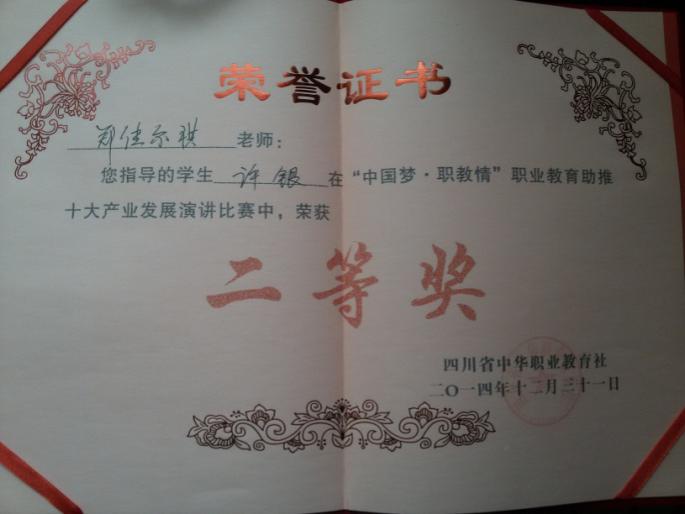 荣誉证书
郑佳尔祺 老师：
您指导的学生 许银 在“中国梦·职教情”职业教育助推
十大产业发展演讲比赛中，荣获
二等奖
四川省中华职业教育社
二〇一四年十二月三十一日